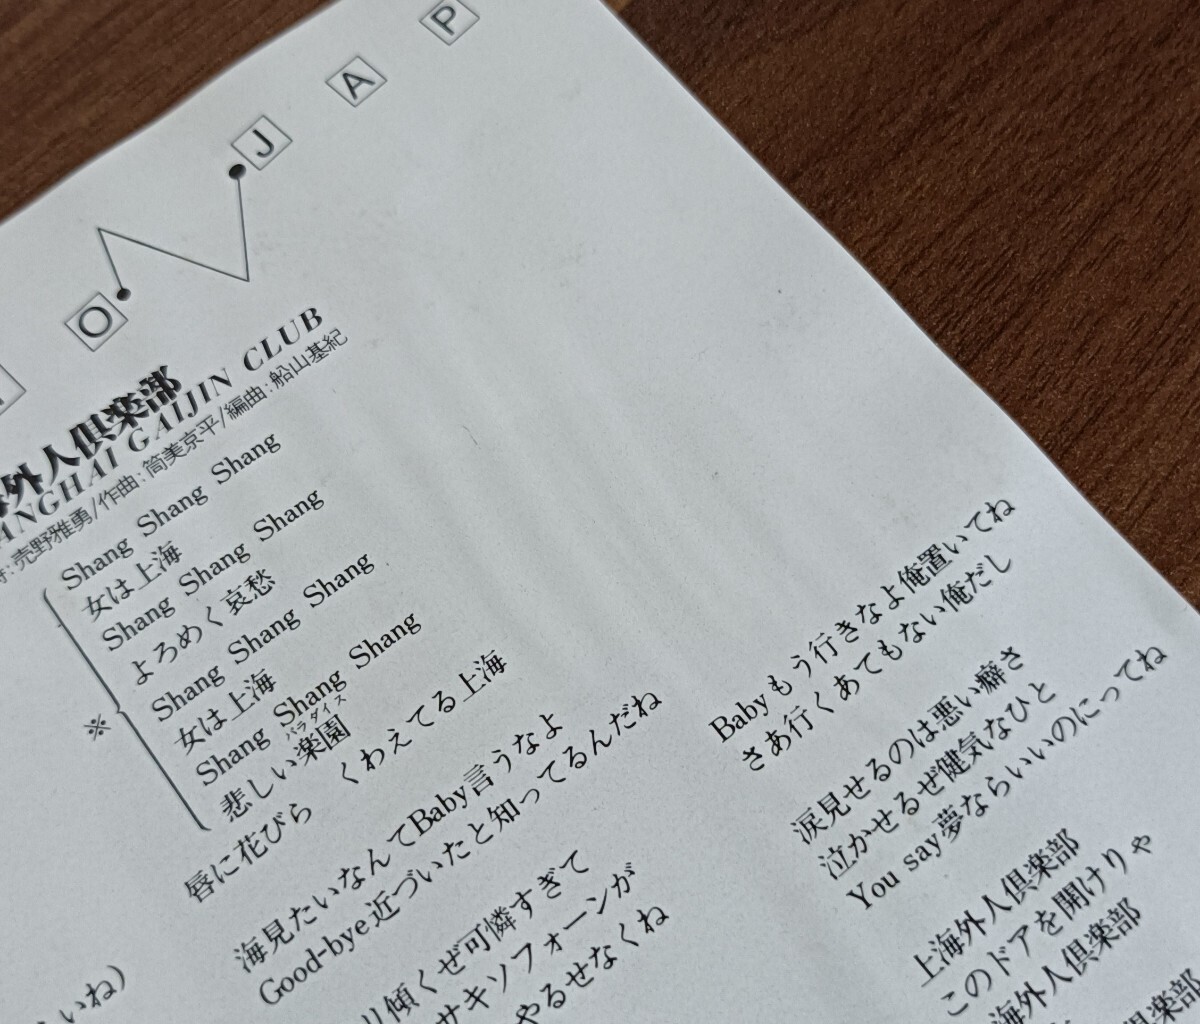 O J A P
海外人倶楽部
SHANGHAI GAIJIN CLUB
詩:売野雅勇/作曲:筒美京平/編曲:船山基紀
Shang Shang Shang
女は上海
Shang Shang Shang
よろめく哀愁
Shang Shang Shang
女は上海
※
Shang Shang Shang
悲しい楽園
パラダイス
唇に花びら くわえてる上海
海見たいなんてBaby言うなよ
Good-bye近づいたと知ってるんだね
り傾くぜ可憐すぎて
サキソフォーンが
やるせなくね
いね)
Babyもう行きなよ俺置いてね
さあ行くあてもない俺だし
涙見せるのは悪い癖さ
泣かせるぜ健気なひと
You say夢ならいいのにってね
上海外人倶楽部
このドアを開けりゃ
海外人倶楽部
倶楽部